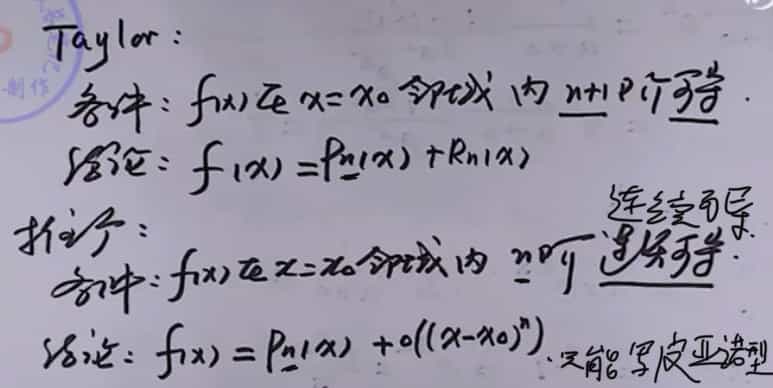 Taylor:
条件: f(x)在x=x₀邻域内n+1阶可导.
结论: f(x)=Pn(x)+Rn(x)
推广:
连续可导
条件: f(x)在x=x₀邻域内n阶连续可导.
结论: f(x)=Pn(x)+o((x-x₀)ⁿ).只能写皮亚诺型
制作